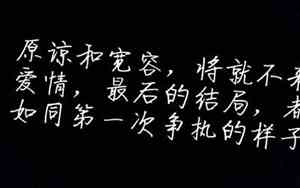 原谅和宽容，将就不来
爱情，最后的结局，都
如同第一次争执的样子